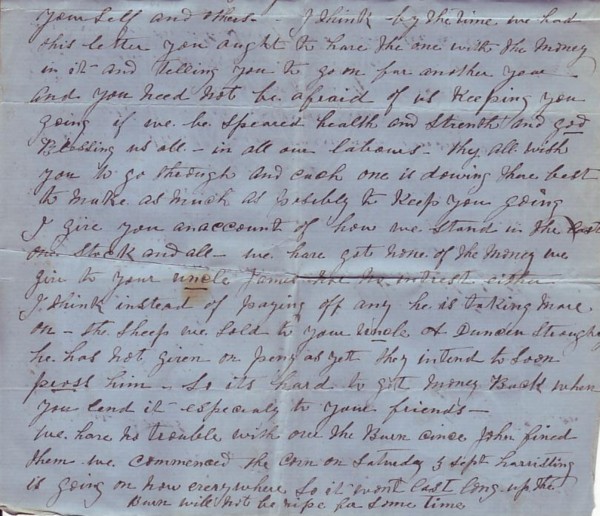 your self and others - I think by the time we had
this letter you aught to have the one with the Money
in it - and telling you to go on for another year
and you need not be afraid of us Keeping you
going if we be speared health and strenth and god
Blessing us all - in all our labours - they all wish
you to go through and each one is dowing there best
to make as much as posibly to Keep you going
I give you anaccount of how we stand in the last
one Stock and all - we have got none of the Money we
giv to your uncle James nor the intrest either
I think instead of paying off any he is taking More
on - the Sheep we Sold to your Uncle & Duncen
he has not given on peny as yett they intend to Soon
him - So its hard to get Money Back when
you lend it especialy to your friends -
we have no trouble with one the Burn cince John fined
them we commenced the Corn on Saturday 3 Sept harristing
is going on now everywhere So it wont last long up the
Burn will not be ripe for some time